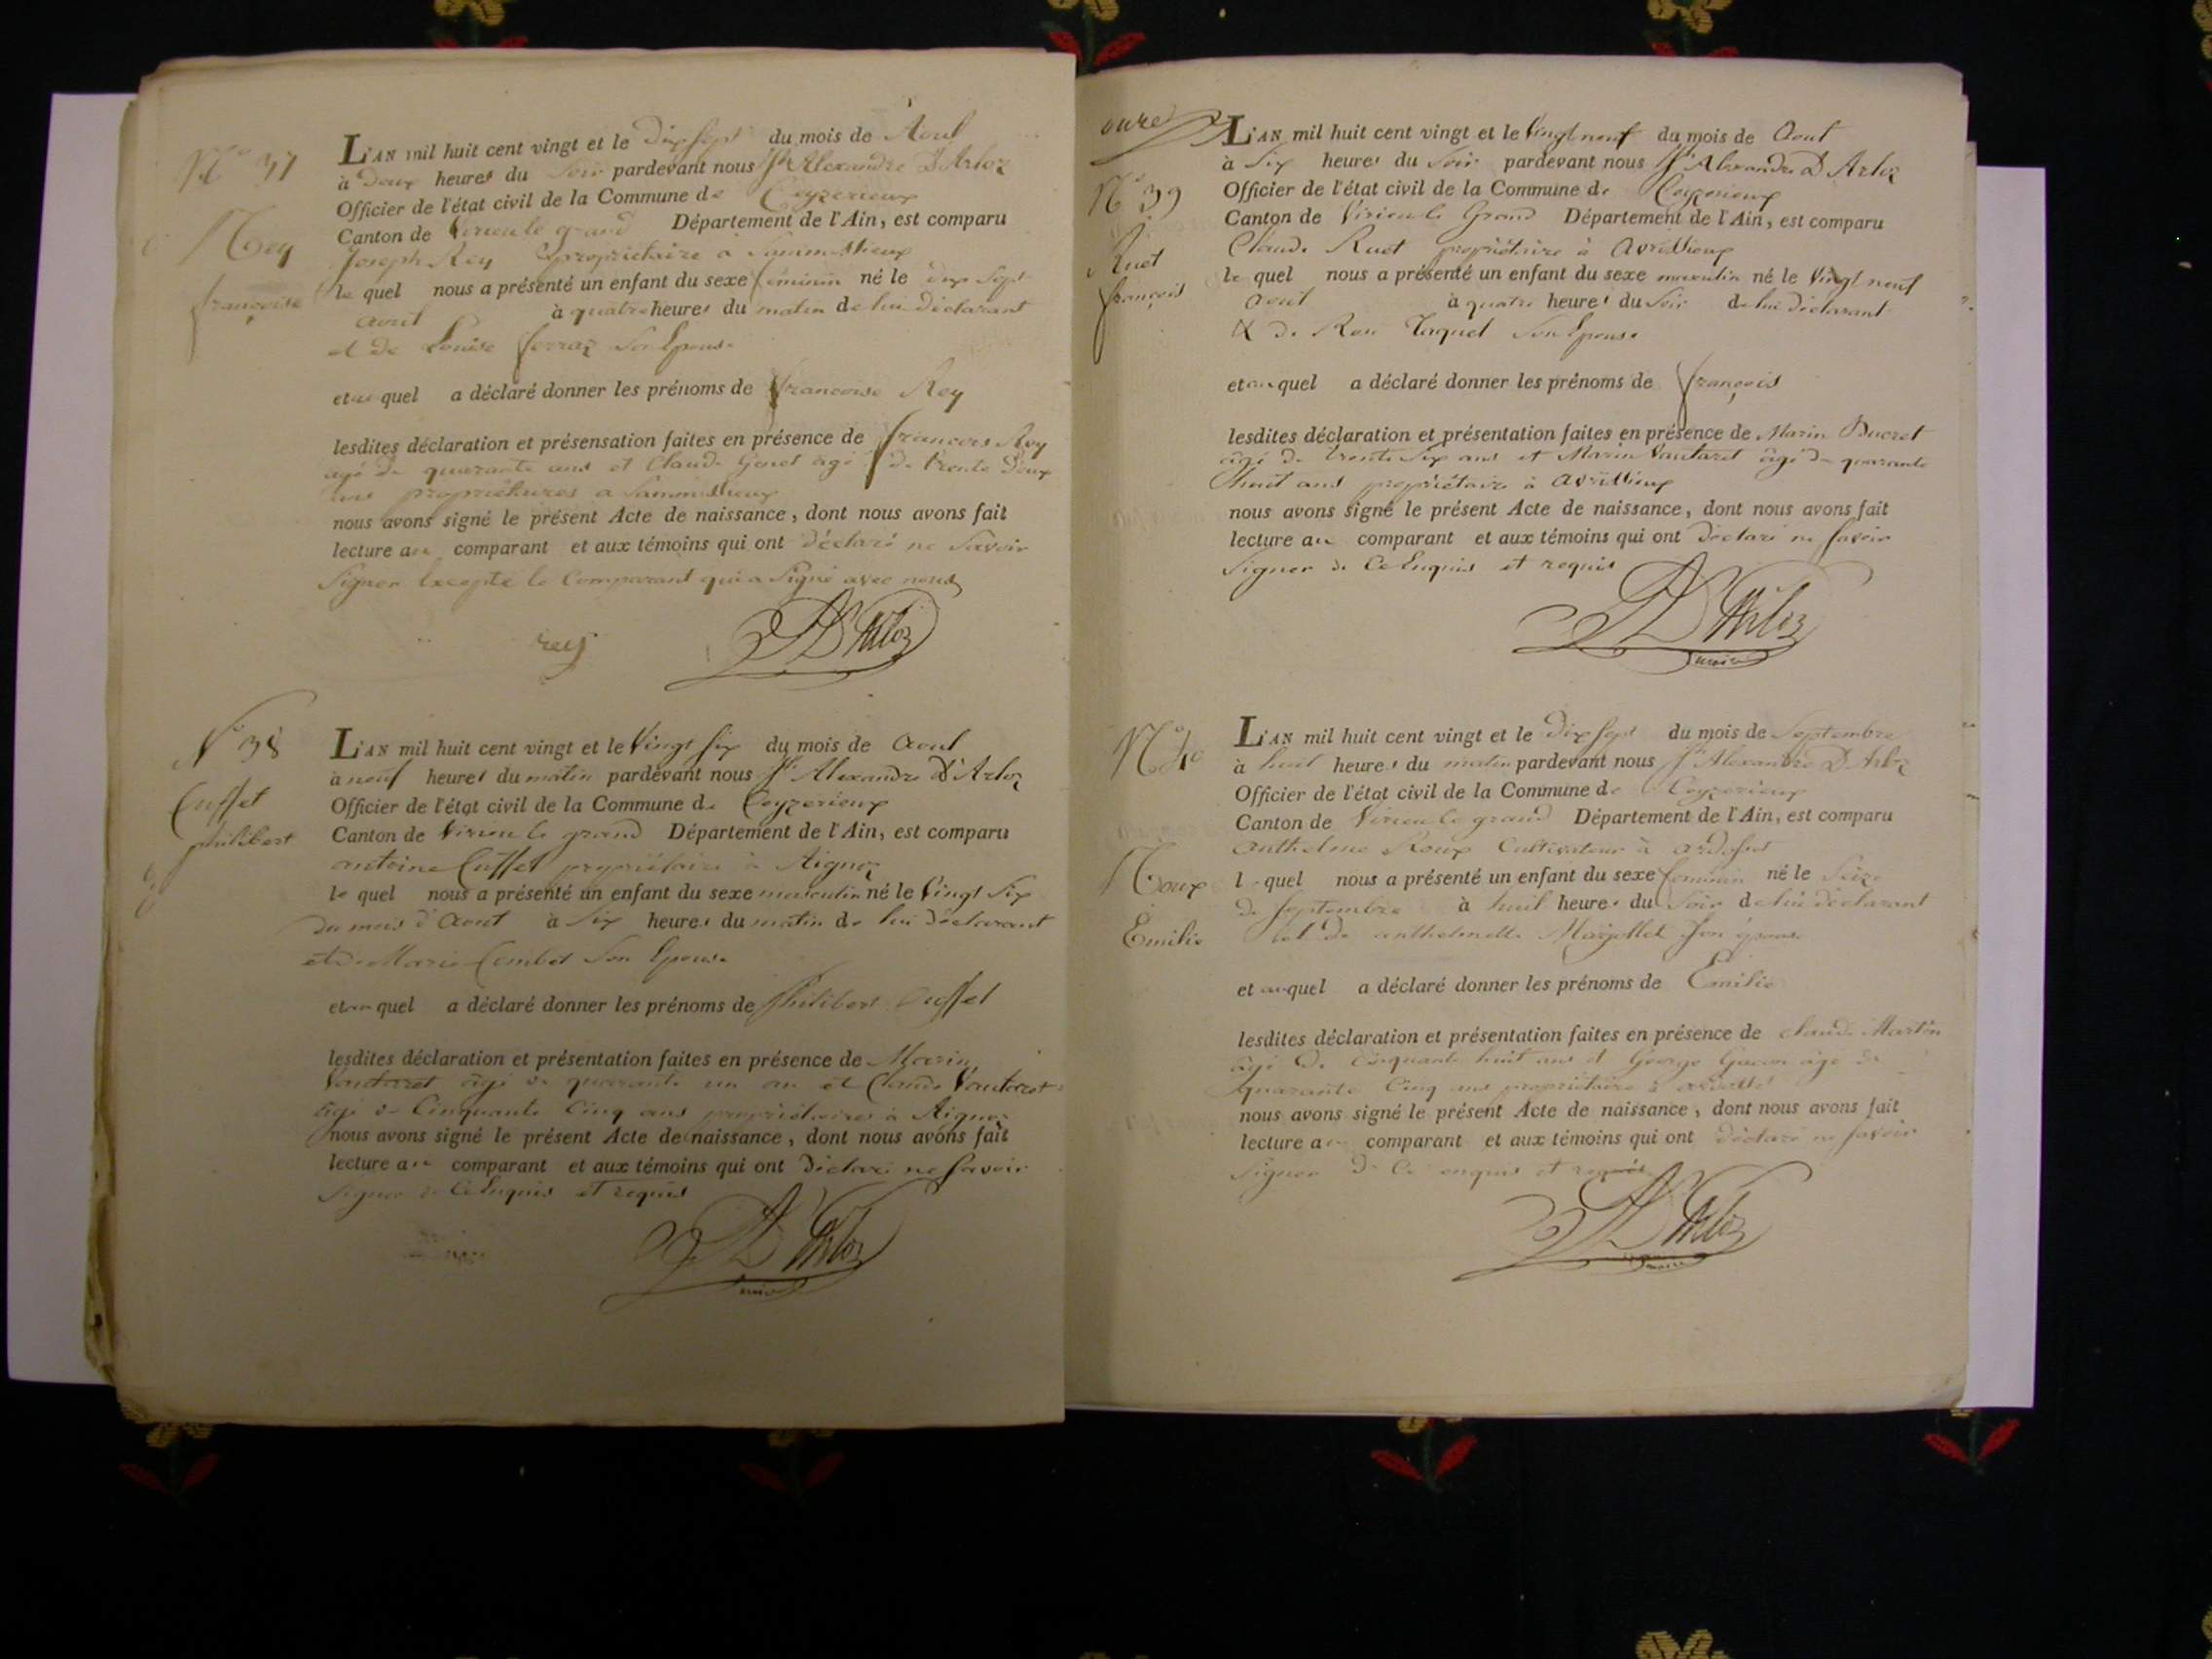 N° 37
Rey
françoise
L'AN mil huit cent vingt et le Dix Sept du mois de Aout
à Deux heures du Soir pardevant nous Jh Alexandre D'Arloz
Officier de l'état civil de la Commune de Ceyzerieux
Canton de Virieu le grand Département de l'Ain, est comparu
Joseph Rey propriétaire à
le quel nous a présenté un enfant du sexe féminin né le dix Sept
aout à quatre heures du matin de lui déclarant
et de Louise ferraz Son Epouse
et au quel a déclaré donner les prénoms de françoise Rey
lesdites déclaration et présensation faites en présence de françois Rey
agé de quarante ans et Claude Genet agé de trente Deux
ans propriétaires a
nous avons signé le présent Acte de naissance, dont nous avons fait
lecture au comparant et aux témoins qui ont déclaré ne Savoir
Signer Excepté le Comparant qui a Signé avec nous
rey
D'Arloz
N° 38
Cusset
philibert
L'AN mil huit cent vingt et le Vingt Six du mois de Aout
à neuf heures du matin pardevant nous Jh Alexandre D'Arloz
Officier de l'état civil de la Commune de Ceyzerieux
Canton de Virieu le grand Département de l'Ain, est comparu
antoine Cusset propriétaire à Aignoz
le quel nous a présenté un enfant du sexe masculin né le Vingt Six
du mois d'Aout à Six heures du matin de lui déclarant
et de Marie Combet Son Epouse
et au quel a déclaré donner les prénoms de Philibert Cusset
lesdites déclaration et présentation faites en présence de Marin
Vautaret agé de quarante un an et Claude Vautaret
agé de Cinquante Cinq ans propriétaires à Aignoz
nous avons signé le présent Acte de naissance, dont nous avons fait
lecture au comparant et aux témoins qui ont Déclaré ne Savoir
Signer de Ce Enquis et requis
D'Arloz
maire
N° 39
Ruet
françois
L'AN mil huit cent vingt et le Vingt neuf du mois de Aout
à Six heures du Soir pardevant nous Jh Alexandre D'Arloz
Officier de l'état civil de la Commune de Ceyzerieux
Canton de Virieu le Grand Département de l'Ain, est comparu
Claude Ruet propriétaire à Avrissieux
le quel nous a présenté un enfant du sexe masculin né le Vingt neuf
Aout à quatre heures du Soir de lui déclarant
& de Son Epouse
et au quel a déclaré donner les prénoms de françois
lesdites déclaration et présentation faites en présence de Marin Ducret
agé de trente Six ans et Marin Vautaret agé de quarante
huit ans propriétaire à Avrissieux
nous avons signé le présent Acte de naissance, dont nous avons fait
lecture au comparant et aux témoins qui ont Déclaré ne Savoir
Signer de Ce Enquis et requis
D'Arloz
maire
N° 40
Roux
Emilie
L'AN mil huit cent vingt et le Dix Sept du mois de Septembre
à huit heures du matin pardevant nous Jh Alexandre D'Arloz
Officier de l'état civil de la Commune de Ceyzerieux
Canton de Virieu le grand Département de l'Ain, est comparu
Anthelme Roux Cultivateur à
le quel nous a présenté un enfant du sexe féminin né le Seize
de Septembre à huit heures du Soir de lui déclarant
et de anthelmette Son épouse
et au quel a déclaré donner les prénoms de Emilie
lesdites déclaration et présentation faites en présence de Claude Martin
agé de Cinquante huit ans et George agé de
quarante Cinq ans propriétaire à
nous avons signé le présent Acte de naissance, dont nous avons fait
lecture au comparant et aux témoins qui ont déclaré ne Savoir
Signer de Ce enquis et requis
D'Arloz
maire